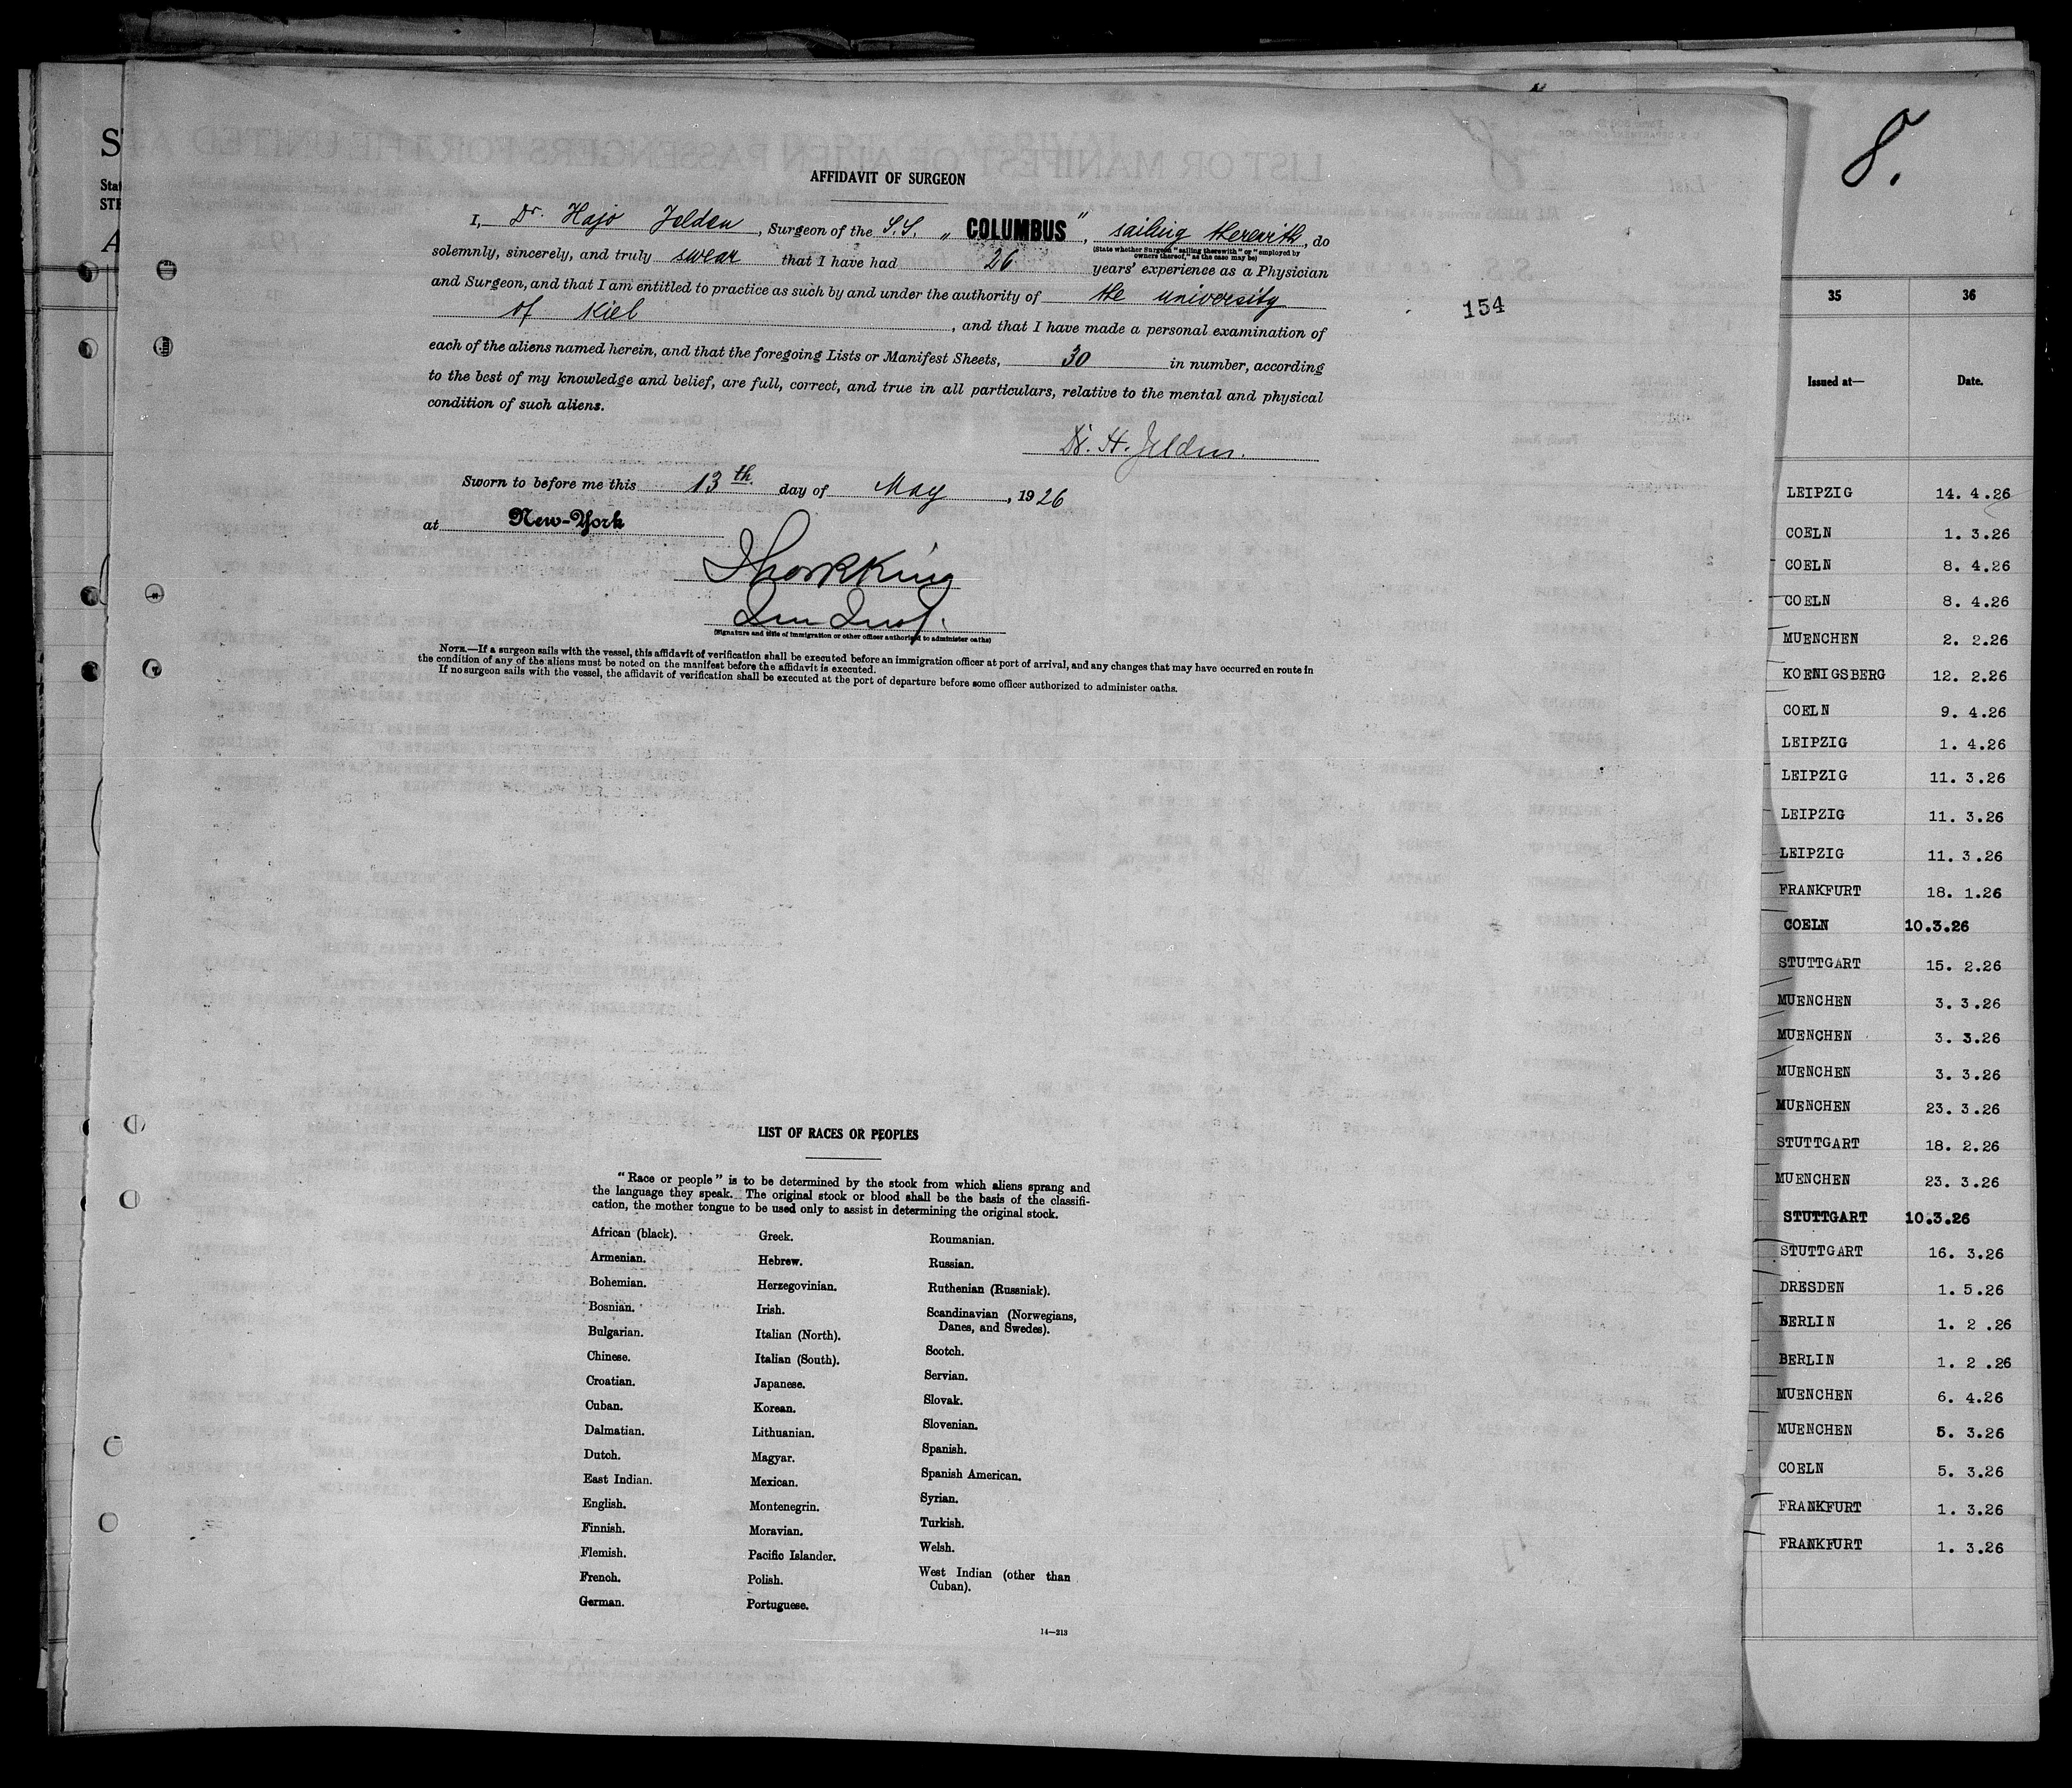 AFFIDAVIT OF SURGEON
I, Dr. Hajo Jelden, Surgeon of the S.S. „ COLUMBUS ", sailing therewith, do
(State whether Surgeon "sailing therewith" or "employed by
owners thereof," as the case may be)
solemnly, sincerely, and truly swear that I have had 26 years' experience as a Physician
and Surgeon, and that I am entitled to practice as such by and under the authority of the university
of Kiel, and that I have made a personal examination of
each of the aliens named herein, and that the foregoing Lists or Manifest Sheets, 30 in number, according
to the best of my knowledge and belief, are full, correct, and true in all particulars, relative to the mental and physical
condition of such aliens.
Dr. H. Jelden.
Sworn to before me this 13th day of May, 1926
at New-York
(Signature and title of immigration or other officer authorized to administer oaths)
NOTE.—If a surgeon sails with the vessel, this affidavit of verification shall be executed before an immigration officer at port of arrival, and any changes that may have occurred en route in
the condition of any of the aliens must be noted on the manifest before the affidavit is executed.
If no surgeon sails with the vessel, the affidavit of verification shall be executed at the port of departure before some officer authorized to administer oaths.
154
LIST OF RACES OR PEOPLES
"Race or people" is to be determined by the stock from which aliens sprang and
the language they speak. The original stock or blood shall be the basis of the classifi-
cation, the mother tongue to be used only to assist in determining the original stock.
African (black).
Armenian.
Bohemian.
Bosnian.
Bulgarian.
Chinese.
Croatian.
Cuban.
Dalmatian.
Dutch.
East Indian.
English.
Finnish.
Flemish.
French.
German.
Greek.
Hebrew.
Herzegovinian.
Irish.
Italian (North).
Italian (South).
Japanese.
Korean.
Lithuanian.
Magyar.
Mexican.
Montenegrin.
Moravian.
Pacific Islander.
Polish.
Portuguese.
Roumanian.
Russian.
Ruthenian (Russniak).
Scandinavian (Norwegians,
Danes, and Swedes).
Scotch.
Servian.
Slovak.
Slovenian.
Spanish.
Spanish American.
Syrian.
Turkish.
Welsh.
West Indian (other than
Cuban).
14—213
8.
35 36
Issued at— Date.
LEIPZIG 14. 4.26
COELN 1. 3.26
COELN 8. 4.26
COELN 8. 4.26
MUENCHEN 2. 2.26
KOENIGSBERG 12. 2.26
COELN 9. 4.26
LEIPZIG 1. 4.26
LEIPZIG 11. 3.26
LEIPZIG 11. 3.26
LEIPZIG 11. 3.26
FRANKFURT 18. 1.26
COELN 10.3.26
STUTTGART 15. 2.26
MUENCHEN 3. 3.26
MUENCHEN 3. 3.26
MUENCHEN 3. 3.26
MUENCHEN 23. 3.26
STUTTGART 18. 2.26
MUENCHEN 23. 3.26
STUTTGART 10.3.26
STUTTGART 16. 3.26
DRESDEN 1. 5.26
BERLIN 1. 2 .26
BERLIN 1. 2 .26
MUENCHEN 6. 4.26
MUENCHEN 5. 3.26
COELN 5. 3.26
FRANKFURT 1. 3.26
FRANKFURT 1. 3.26